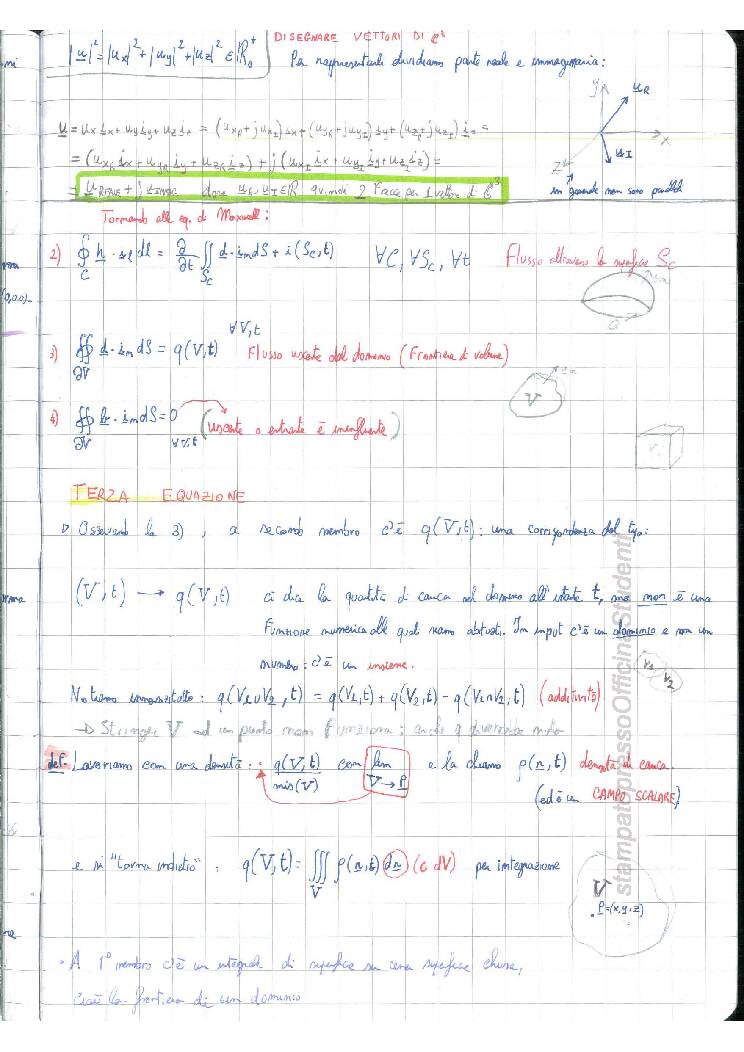 DISEGNARE VETTORI DI C³
|u|² = |ux|² + |uy|² + |uz|² ∈ ℝ₀⁺
Per rappresentarli dividiamo parte reale e immaginaria:
y uR
x
uI
z
in generale non sono paralleli
u = ux ix + uy iy + uz iz = (uxR + j uxI) ix + (uyR + j uyI) iy + (uzR + j uzI) iz =
= (uxR ix + uyR iy + uzR iz) + j (uxI ix + uyI iy + uzI iz) =
= uREALE + j uIMMAG dove uR, uI ∈ ℝ quindi 2 frecce per 1 vettore di C³
Tornando alle eq. di Maxwell:
2) ∮C h · il dl = ∂/∂t ∬Sc d · in dS + i (Sc, t) ∀C, ∀Sc, ∀t Flusso attraverso la superficie Sc
in
C
3) ∯∂V d · in dS = q(V, t) ∀V, t Flusso uscente dal dominio (Frontiera di volume)
in
V
4) ∯∂V b · in dS = 0 ∀V, t (uscente o entrante è ininfluente)
TERZA EQUAZIONE
Osservando la 3), a secondo membro c'è q(V, t): una corrispondenza del tipo:
(V, t) → q(V, t) ci dice la quantità di carica nel dominio all'istante t, ma non è una
Funzione numerica alle quali siamo abituati. In input c'è un dominio e non un
numero: c'è un insieme.
V1 V2
Notiamo innanzitutto: q(V1 ∪ V2, t) = q(V1, t) + q(V2, t) - q(V1 ∩ V2, t) (additività)
→ Stringere V ad un punto non funziona: anche q diventerebbe nulla
def. Lavoriamo con una densità: q(V, t) / mis(V) con lim V → P e la chiamo ρ(r, t) densità di carica.
(ed è un CAMPO SCALARE)
e si "torna indietro": q(V, t) = ∭V ρ(r, t) dr (o dV) per integrazione
V
P = (x, y, z)
• A 1° membro c'è un integrale di superficie su una superficie chiusa,
cioè la frontiera di un dominio
stampato presso Officina Studenti